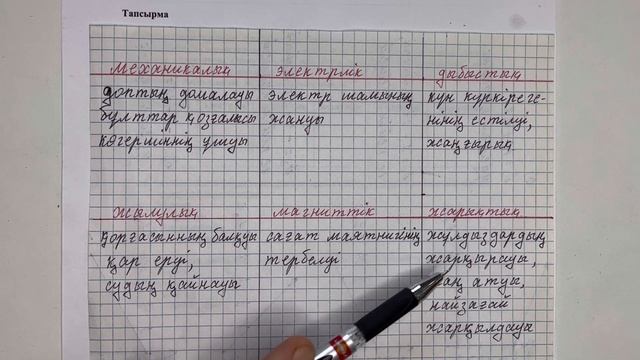 Тапсырма
Механикалық
электрлік
дыбыстық
доптың домалауы
бұлттар қозғалысы
көгершіннің ұшуы
электр шамының
жануы
күн күркіреге-
нінің естілуі,
жаңғырық
жылулық
магниттік
жарықтық
қорғасынның балқуы
қар еруі,
судың қайнауы
сағат маятнигінің
тербелуі
жұлдыздардың
жарқырауы,
таң атуы,
найзағай
жарқылдауы